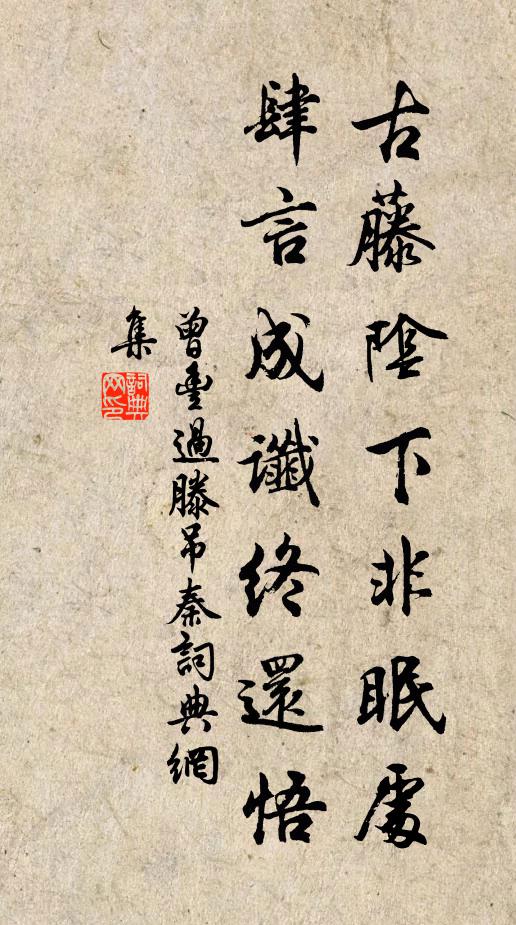 古藤陰下非眠處
肆言成讖終還悟
曾豐過滕吊秦詞典網
集
詞典
网印